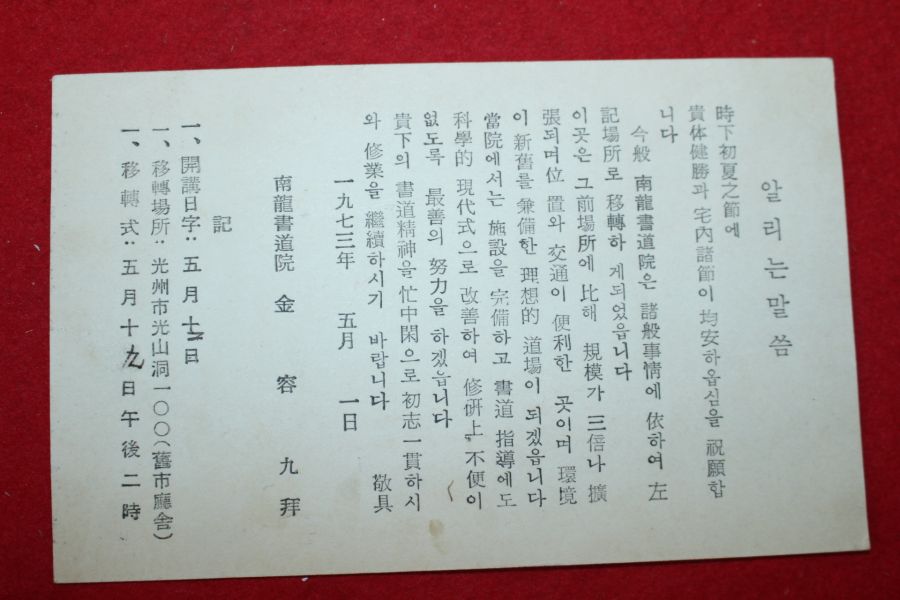 알리는 말씀
時下初夏之節에
貴体健勝과 宅內諸節이 均安하옵심을 祝願합
니다
今般 南龍書道院은 諸般事情에 依하여 左
記場所로 移轉하게되었읍니다
이곳은 그前場所에 比해 規模가 三倍나 擴
張되며位置와 交通이 便利한 곳이며 環境
이 新舊를 兼備한 理想的 道場이 되겠읍니다
當院에서는 施設을 完備하고 書道 指導에도
科學的 現代式으로 改善하여 修硏上 不便이
없도록 最善의 努力을 하겠읍니다
貴下의 書道精神을 忙中閑으로 初志一貫하시
와 修業을 繼續하시기 바랍니다 敬具
一九七三年 五月 一日
南龍書道院 金容九 拜
記
一、開講日字：五月十二日
一、移轉場所：光州市光山洞一○○(舊市廳舍)
一、移轉式：五月十九日午後二時